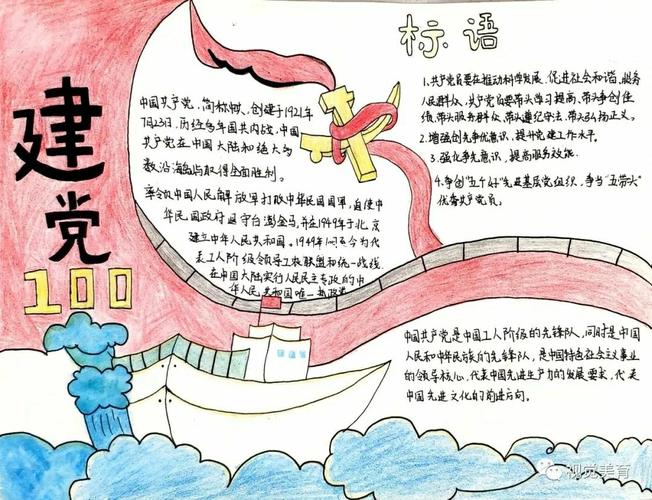 建党
100
标语
中国共产党，简称中共，创建于1921年
7月23日，历经多年国共内战，中国
共产党在中国大陆和绝大多
数沿海岛屿取得全面胜利。
率领中国人民解放军打败中华民国国军，迫使中
华民国政府退守台澎金马，并在1949年于北京
建立中华人民共和国。1949年10月至今为代
表工人阶级领导工农联盟和统一战线
在中国大陆实行人民民主专政的中
华人民共和国唯一执政党
1.共产党员要在推动科学发展、促进社会和谐、服务
人民群众，共产党员要带头学习提高，带头争创佳
绩，带头服务群众，带头遵纪守法，带头弘扬正义。
2.增强创先争优意识，提升党建工作水平。
3.强化争先意识，提高服务效能.
4.争创"五个好"先进基层党组织，争当"五带头"
优秀共产党员。
中国共产党是中国工人阶级的先锋队，同时是中国
人民和中华民族的先锋队，是中国特色社会主义事业
的领导核心，代表中国先进生产力的发展要求，代表
中国先进文化的前进方向。
视觉美育